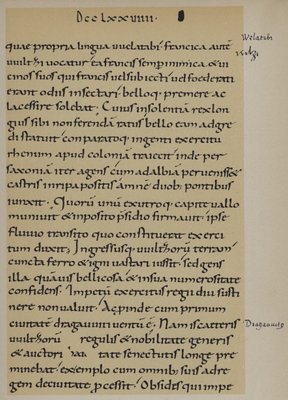 Dcclxxuiiii.
Welatabi
quae propria lingua uuelatabi francica autē
uuiltzi uocatur ea francis semp inimica & ui
cinos suos qui francis uel subiecti uel foederati
erant odiis insectari belloq; premere ac
lacessire solebat. Cuius insolentiā rex lon
gius sibi non ferendā ratus bello eam adgre
di statuit conparatoq; ingenti exercitu
rhenum apud coloniā traiecit inde per
saxoniā iter agens cum ad albiā peruenisset
castris in ripa positis amnē duob; pontibus
iunxit. Quorū unū ex utroq; capite uallo
muniuit & inposito p̄sidio firmauit. ipse
fluuio transito quo constituerat exerci
tum duxit; Ingressusq; uuiltzorū terram
cuncta ferro & igni uastari iussit. sed gens
illa quāuis bellicosa & in sua numerositate
confidens. Impetū exercitus regii diu susti
nere non ualuit. Ac pinde cum primum
ciuitatē dragauuiti uentū ē. Nam is ceteris
Dragauuito
uuiltzorū regulis & nobilitate generis
& auctori tate senectutis longe pre
minebat ex templo cum omnib; suis ad re
gem de ciuitate p̄cessit. Obsides qui impe